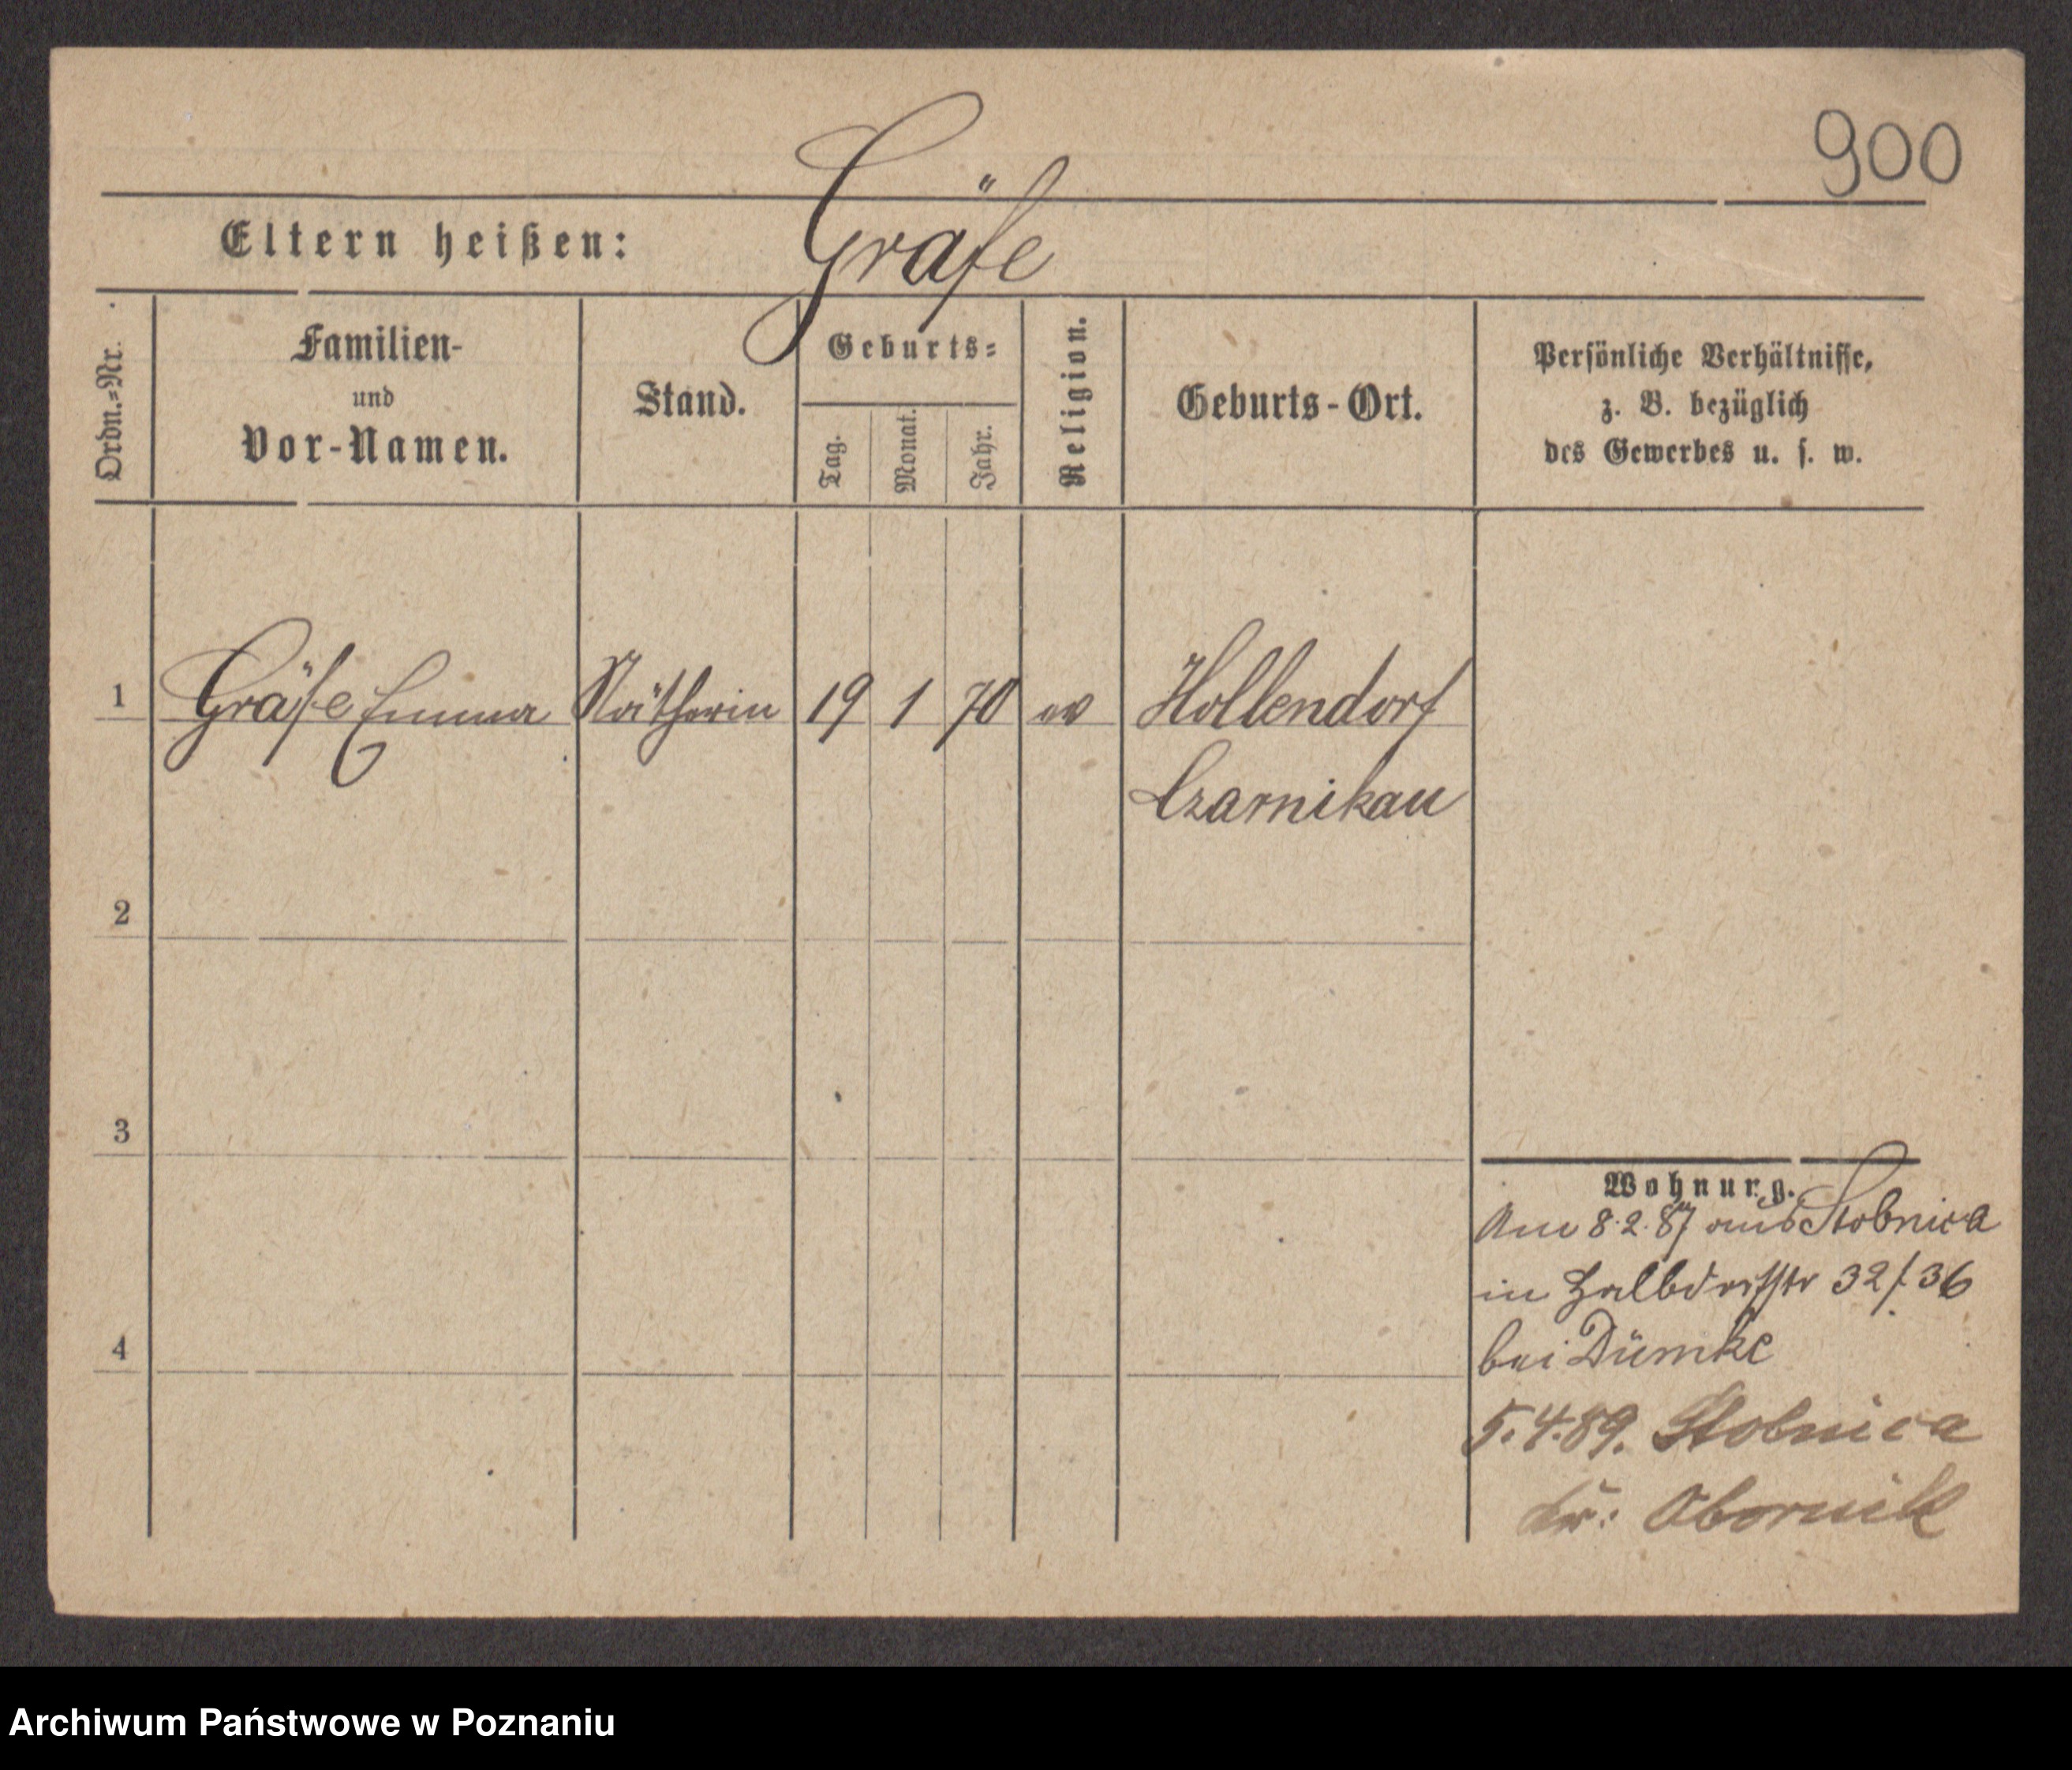 900
Eltern heißen: Gräfe
Ordn.=Nr.
Familien-
und
Vor-Namen.
Stand.
Geburts=
Tag.
Monat.
Jahr.
Religion.
Geburts-Ort.
Persönliche Verhältnisse,
z. B. bezüglich
des Gewerbes u. s. w.
1 Gräfe Emma Nätherin 19 1 70 ev Hollendorf
Czarnikau
2
3
4
Wohnung.
Am 8.2.87 aus Stobnica
in Halbdorfstr 32/36
bei Dümke
5.4.89. Stobnica
Kr: Obornik
Archiwum Państwowe w Poznaniu